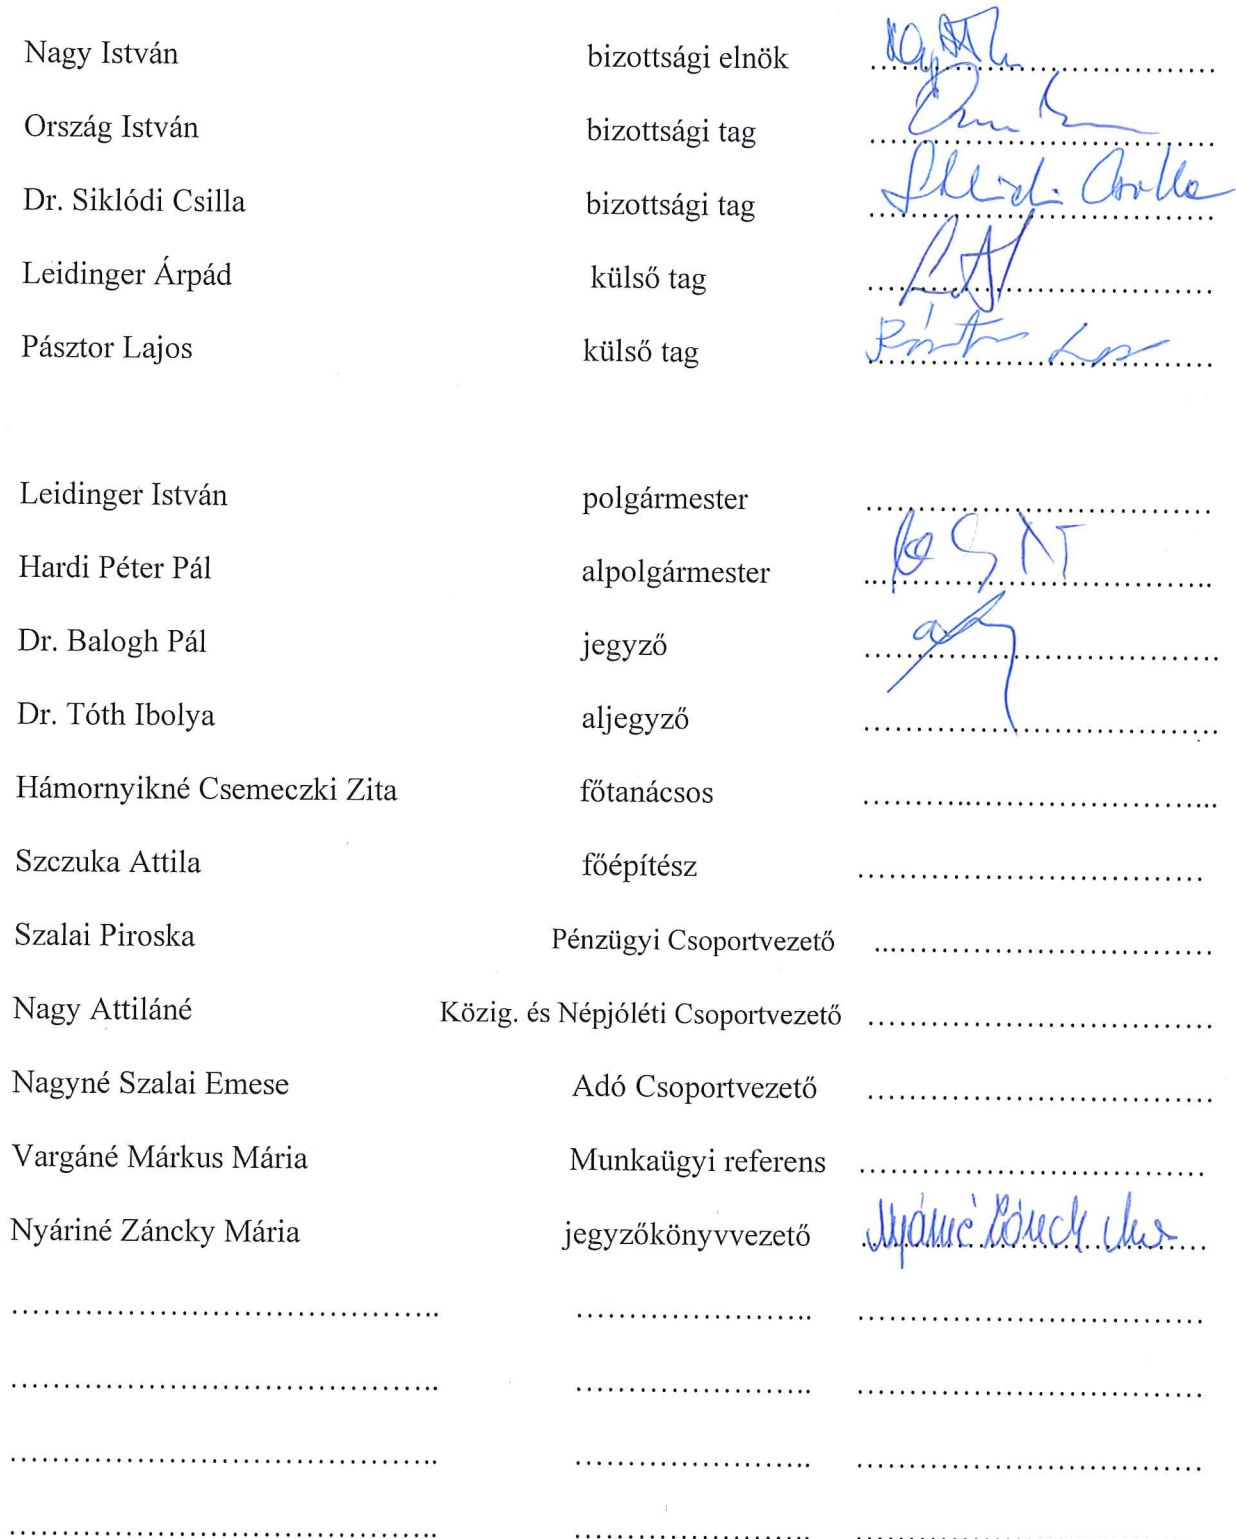 Nagy István bizottsági elnök ........................................
Ország István bizottsági tag ........................................
Dr. Siklódi Csilla bizottsági tag ........................................
Leidinger Árpád külső tag ........................................
Pásztor Lajos külső tag ........................................
Leidinger István polgármester ........................................
Hardi Péter Pál alpolgármester ........................................
Dr. Balogh Pál jegyző ........................................
Dr. Tóth Ibolya aljegyző ........................................
Hámornyikné Csemeczki Zita főtanácsos ........................................
Szczuka Attila főépítész ........................................
Szalai Piroska Pénzügyi Csoportvezető ........................................
Nagy Attiláné Közig. és Népjóléti Csoportvezető ........................................
Nagyné Szalai Emese Adó Csoportvezető ........................................
Vargáné Márkus Mária Munkaügyi referens ........................................
Nyáriné Záncky Mária jegyzőkönyvvezető ........................................